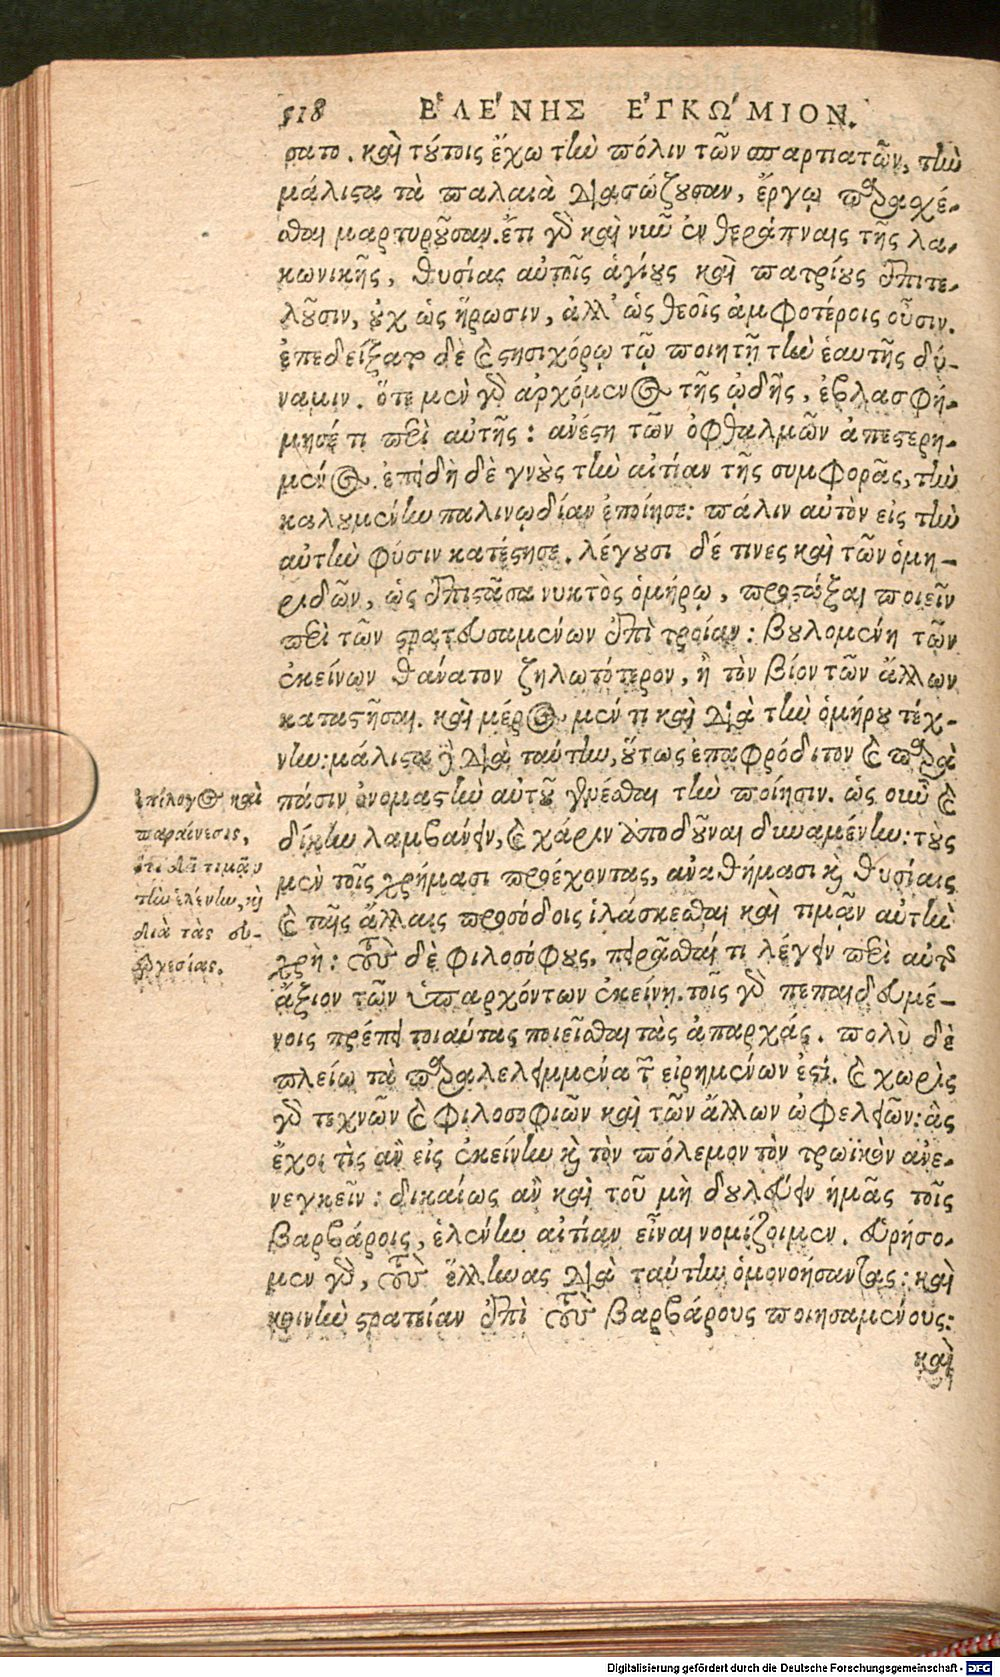 518 ἙΛΕ´ΝΗΣ ἘΓΚΩ´ΜΙΟΝ.
σατο. καὶ τούτοις ἔχω τὴν πόλιν τῶν σπαρτιατῶν, τὴν
μάλιστα τὰ παλαιὰ διασώζουσαν, ἔργῳ παρασχέ-
σθαι μαρτυροῦσαν. ἔτι γὰρ καὶ νῦν ἐν θεράπναις τῆς λα-
κωνικῆς, θυσίας αὐτοῖς ἁγίους καὶ πατρίους ἐπιτε-
λοῦσιν, οὐχ ὡς ἥρωσιν, ἀλλ' ὡς θεοῖς ἀμφοτέροις οὖσιν.
ἐπεδείξατο δὲ καὶ στησιχόρῳ τῷ ποιητῇ τὴν ἑαυτῆς δύ-
ναμιν. ὅτε μὲν γὰρ ἀρχόμενος τῆς ᾠδῆς, ἐβλασφή-
μησέ τι περὶ αὐτῆς: ἀνέστη τῶν ὀφθαλμῶν ἀπεστερη-
μένος. ἐπειδὴ δὲ γνοὺς τὴν αἰτίαν τῆς συμφορᾶς, τὴν
καλουμένην παλινῳδίαν ἐποίησε: πάλιν αὐτὸν εἰς τὴν
αὐτὴν φύσιν κατέστησε. λέγουσι δέ τινες καὶ τῶν ὁμη-
ριδῶν, ὡς ἐπιστᾶσα νυκτὸς ὁμήρῳ, προστάξαι ποιεῖν
περὶ τῶν στρατευσαμένων ἐπὶ τροίαν: βουλομένη τῶν
ἐκείνων θάνατον ζηλωτότερον, ἢ τὸν βίον τῶν ἄλλων
καταστῆσαι. καὶ μέρος μέν τι καὶ διὰ τὴν ὁμήρου τέχ-
νην: μάλιστα δὲ διὰ ταύτην, οὕτως ἐπαφρόδιτον καὶ παρὰ
πάσιν ὀνομαστὴν αὐτοῦ γενέσθαι τὴν ποίησιν. ὡς οὖν καὶ
δίκην λαμβάνειν, καὶ χάριν ἀποδοῦναι δυναμένην: τοὺς
μὲν τοῖς χρήμασι προέχοντας, αναθήμασι καὶ θυσίαις
καὶ ταῖς ἄλλαις προσόδοις ἱλάσκεσθαι καὶ τιμᾶν αὐτὴν
χρὴ: τοὺς δὲ φιλοσόφους, πειρᾶσθαί τι λέγειν περὶ αὐτῆς
ἄξιον τῶν ὑπαρχόντων ἐκείνῃ. τοῖς γὰρ πεπαιδευμέ-
νοις πρέπει τοιαύτας ποιεῖσθαι τὰς ἀπαρχάς. πολὺ δὲ
πλείω τὰ παραλελειμμένα τῶν εἰρημένων ἐστί. καὶ χωρὶς
γὰρ τεχνῶν καὶ φιλοσοφιῶν καὶ τῶν ἄλλων ὠφελειῶν: ἃς
ἔχοι τὶς ἂν εἰς ἐκείνην καὶ τὸν πόλεμον τὸν τρωϊκὸν ἀνε-
νεγκεῖν: δικαίως ἂν καὶ τοῦ μὴ δουλεύειν ἡμᾶς τοῖς
βαρβάροις, ἑλένην αἰτίαν εἶναι νομίζοιμεν. εὑρήσο-
μεν γὰρ, τοὺς ἕλληνας διὰ ταύτην ὁμονοήσαντας: καὶ
κοινὴν στρατείαν ἐπὶ τοὺς βαρβάρους ποιησαμένους:
καὶ
ἐπίλογος καὶ
παραίνεσις,
ὅτι δεῖ τιμᾷν
τὴν ἑλένην, καὶ
διὰ τὰς εὐ-
εργεσίας.
Digitalisierung gefördert durch die Deutsche Forschungsgemeinschaft - DFG